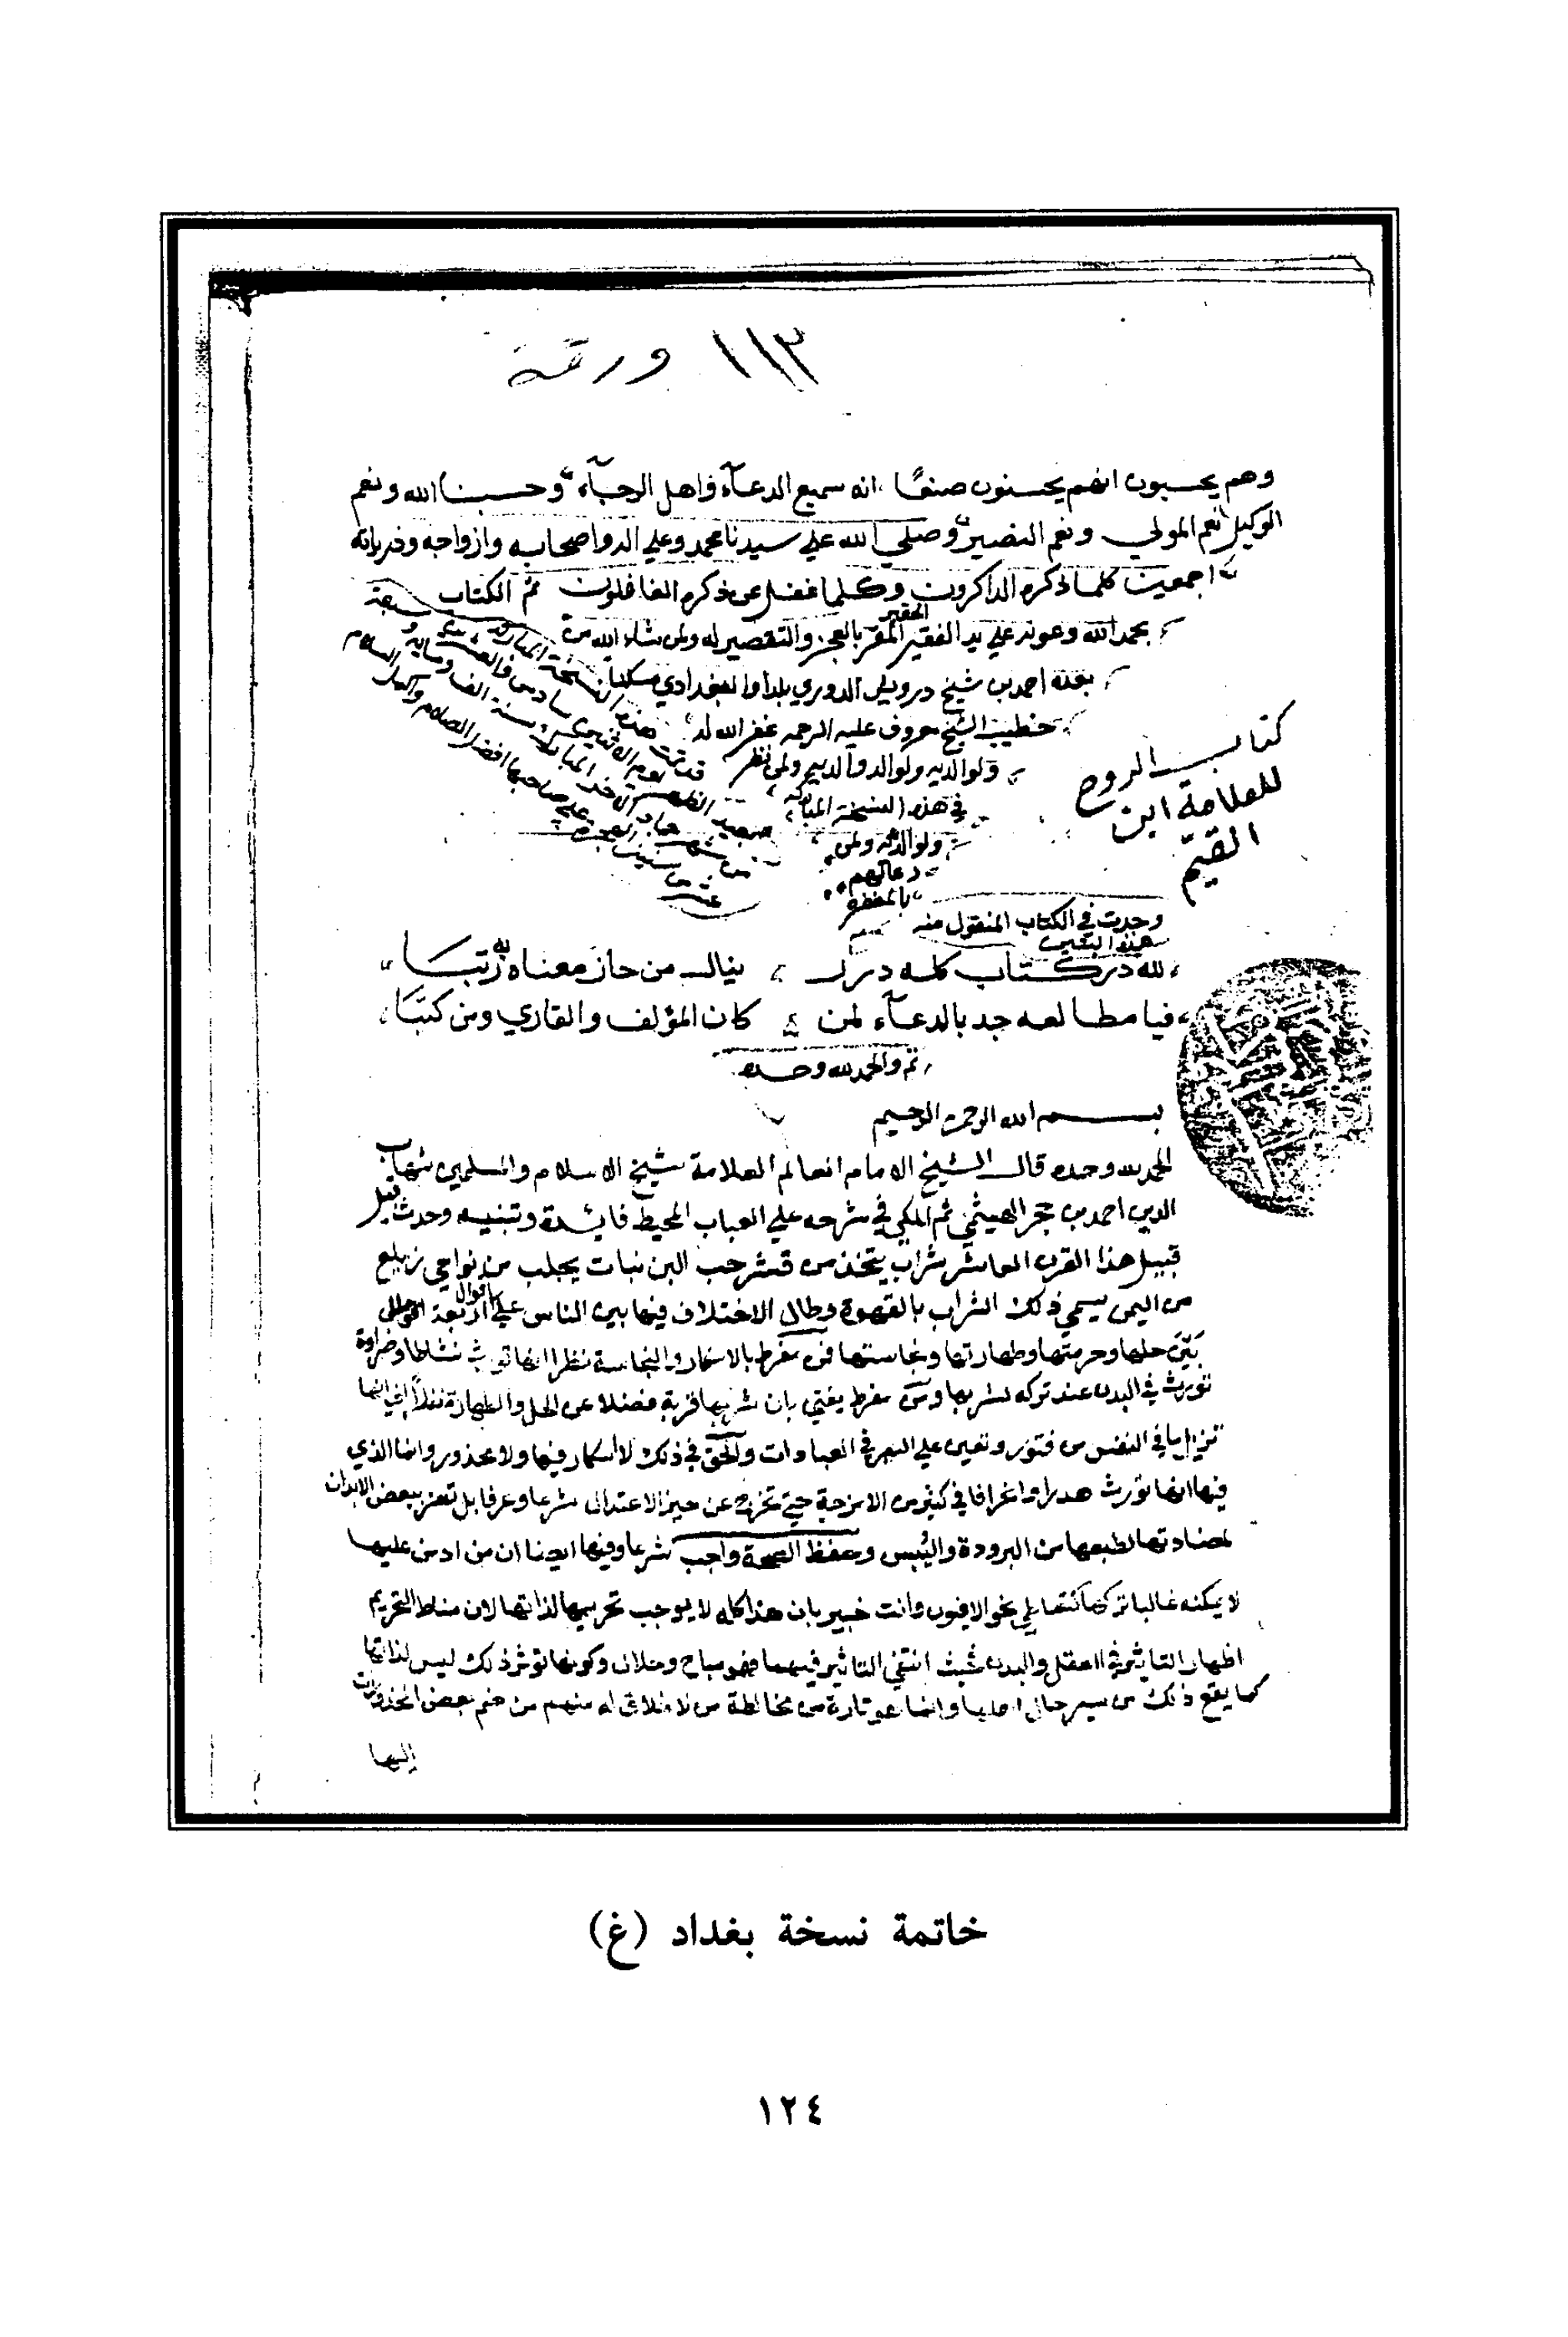 ١١٣ ورقة
وهم يحسبون انهم يحسنون صنعًا انه سميع الدعآء واهل الرجآء وحسبنا الله ونعم
الوكيل نعم المولي ونعم النصير وصلي الله علي سيدنا محمد وعلي اله واصحابه وازواجه وذرياته
اجمعين كلما ذكره الذاكرون وكلما غفل عن ذكره الغافلون تم الكتاب
بحمد الله وعونه علي يد الفقير الحقير المقر بالعجز والتقصير له ولمن شاء الله من
بعده احمد بن شيخ درويش الدوري بلدا والبغدادي مسكنا
خطيب الشيخ معروف عليه الرحمه غفر الله له
ولوالديه ولوالد والديه ولمن نظر
في هذه النسخة المباركه
ولوالديه ولمن
دعا لهم
بالمغفره
قد تمت هذه النسخة المباركة
يوم الاثنين سادس
كتاب الروح
للعلامة ابن
القيم
وجدت في الكتاب المنقول منه
هذه البيتين
لله در كتاب كله درر ينال من حاز معناه به رتبا
فيا مطالعه جد بالدعآء لمن كان المؤلف والقاري ومن كتبا
تم والحمد لله وحده
بسم الله الرحمن الرحيم
الحمد لله وحده قال الشيخ الامام العالم العلامة شيخ الاسلام والمسلمين شهاب
الدين احمد بن حجر الهيثمي ثم المكي في شرحه علي العباب المحيط فائدة وتنبيه وحدث قبل
قبيل هذا القرن العاشر شراب يتخذ من قشر حب البن نبات يجلب من نواحي زيلع
من اليمن يسمي ذلك الشراب بالقهوة وطال الاختلاف فيها بين الناس علي اقوال
حلها وحرمتها وطهارتها ونجاستها فمن مفرط بالاسكار والنجاسة نظرا انها تورث نشاطا وضراوة
تورث في البدن عند تركه لشربها ومن مفرط يفتي بان شربها قربة فضلا عن الحل والطهارة نظرا الي انها
تزيل ما في النفس من فتور وتعين علي السهر في العبادات والحق في ذلك لا اسكار فيها ولا مخدور وانما الذي
فيها انها تورث في كثير من الامزجة حتي تخرج عن حيز الاعتدال شرعا وعرفا بل تضر ببعض الابدان
لمضادتها لطبعها من البرودة واليُبس وحفظ الصحة واجب شرعا وفيها ايضا ان من ادمن عليها
لا يمكنه غالبا تركها نحو الافيون وانت خبير بان هذا كله لا يوجب تحريمها لذاتها لان مناط التحريم
اظهار التاثير في العقل والبدن انتفي التاثير فيهما فهو مباح وحلال وكونها تؤثر ذلك ليس لذاتها
كما يقع ذلك من سير حال اهلها وانما هو تارة من مخالطة من لا خلاق له منهم من ضم بعض المخدرات
اليها
خاتمة نسخة بغداد (غ)
١٢٤